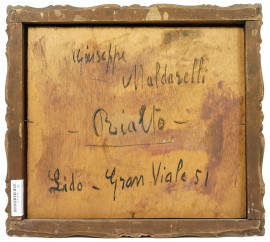 Giuseppe
Maldarelli
- Rialto -
Lido - Gran Viale 51